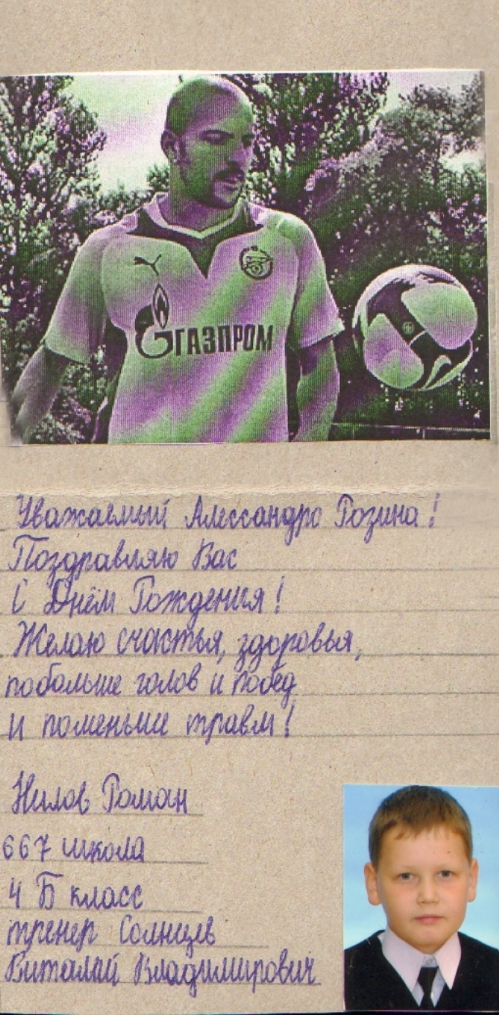 ГАЗПРОМ
Уважаемый Алессандро Розина!
Поздравляю Вас
С Днём Рождения!
Желаю счастья, здоровья,
побольше голов и побед
и поменьше травм!
Нилов Роман
667 школа
4 Б класс
тренер Солнцев
Виталий Владимирович